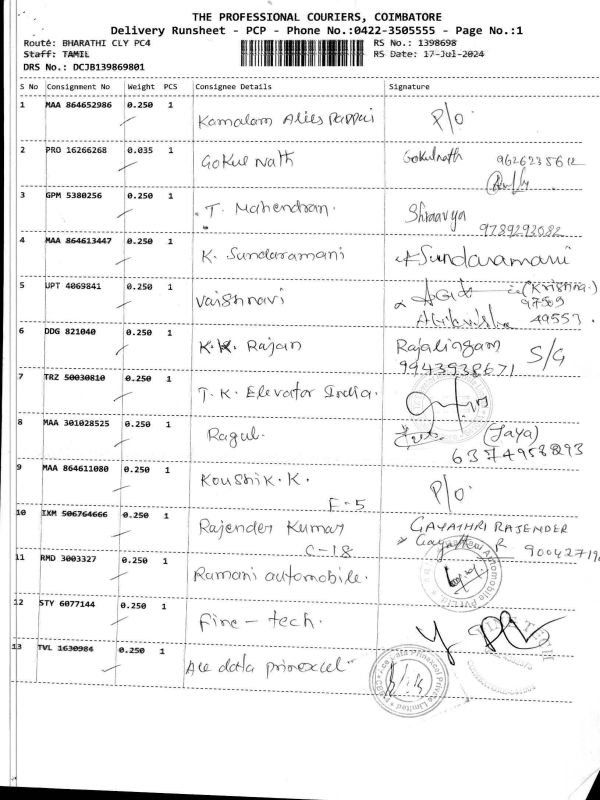 THE PROFESSIONAL COURIERS, COIMBATORE
Delivery Runsheet - PCP - Phone No.:0422-3505555 - Page No.:1
Route: BHARATHI CLY PC4
RS No.: 1398698
Staff: TAMIL
RS Date: 17-Jul-2024
DRS No.: DCJB139869801
S No Consignment No Weight PCS Consignee Details Signature
1 MAA 864652986 0.250 1 Kamalam P/o.
2 PRO 16266268 0.035 1 Gokul Nath Gokulnath 9626235612
3 GPM 5380256 0.250 1 T. Mahendran. Shraavya
9789292082
4 MAA 864613447 0.250 1 K. Sundaramani Sundaramani
5 UPT 4069841 0.250 1 Vaishnavi (Krishna.)
97509
49553.
6 DDG 821040 0.250 1 K.K. Rajan Rajalingam S/G
9943938671
7 TRZ 50030810 0.250 1 T. K. Elevator India.
8 MAA 301028525 0.250 1 Ragul. (Jaya)
6374958293
9 MAA 864611080 0.250 1 Koushik. K. P/o.
F-5
10 IXM 506764666 0.250 1 Rajender Kumar GAYATHRI RAJENDER
C-18 Gayathri R
11 RMD 3003327 0.250 1 Ramani automobile.
12 STY 6077144 0.250 1 Fine - tech.
13 TVL 1630984 0.250 1 Ace data primexcel